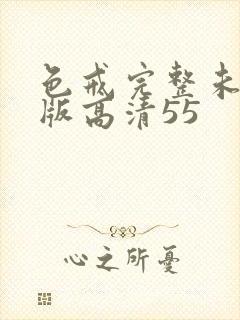 色戒完整未
版高清55
心之所憂